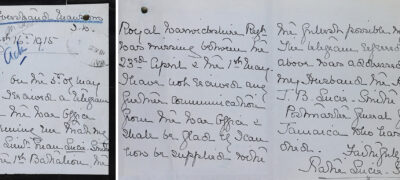 Overstrand Mansions
S.W.
1915
On the 5th of May
I received a telegram
from the War Office
informing me that my
Lieut. Euan Lucie-Smith
the 1st Battalion the
Royal Warwickshire Regt
was missing between the
23rd April & the 1st May.
I have not received any
further communication
from the War Office &
shall be glad if I can
now be supplied with
the fullest possible
The telegram referred
above was addressed
my Husband the
J. B. Lucie-Smith
Postmaster General
Jamaica who has
died. Faithfully
Katie Lucie-S